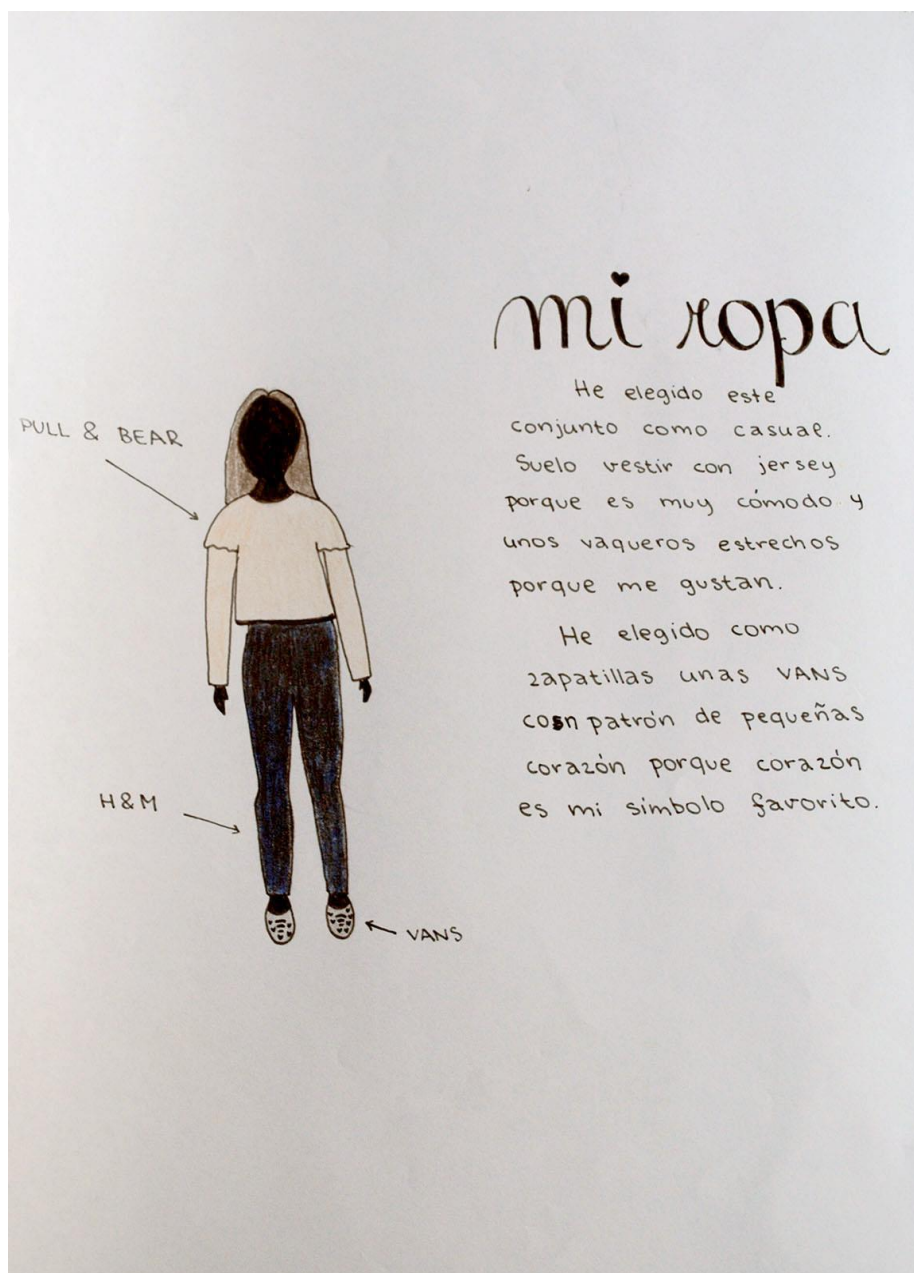 mi ropa
He elegido este
conjunto como casual.
Suelo vestir con jersey
porque es muy cómodo y
unos vaqueros estrechos
porque me gustan.
He elegido como
zapatillas unas VANS
con patrón de pequeñas
corazón porque corazón
es mi símbolo favorito.
PULL & BEAR
H&M
VANS